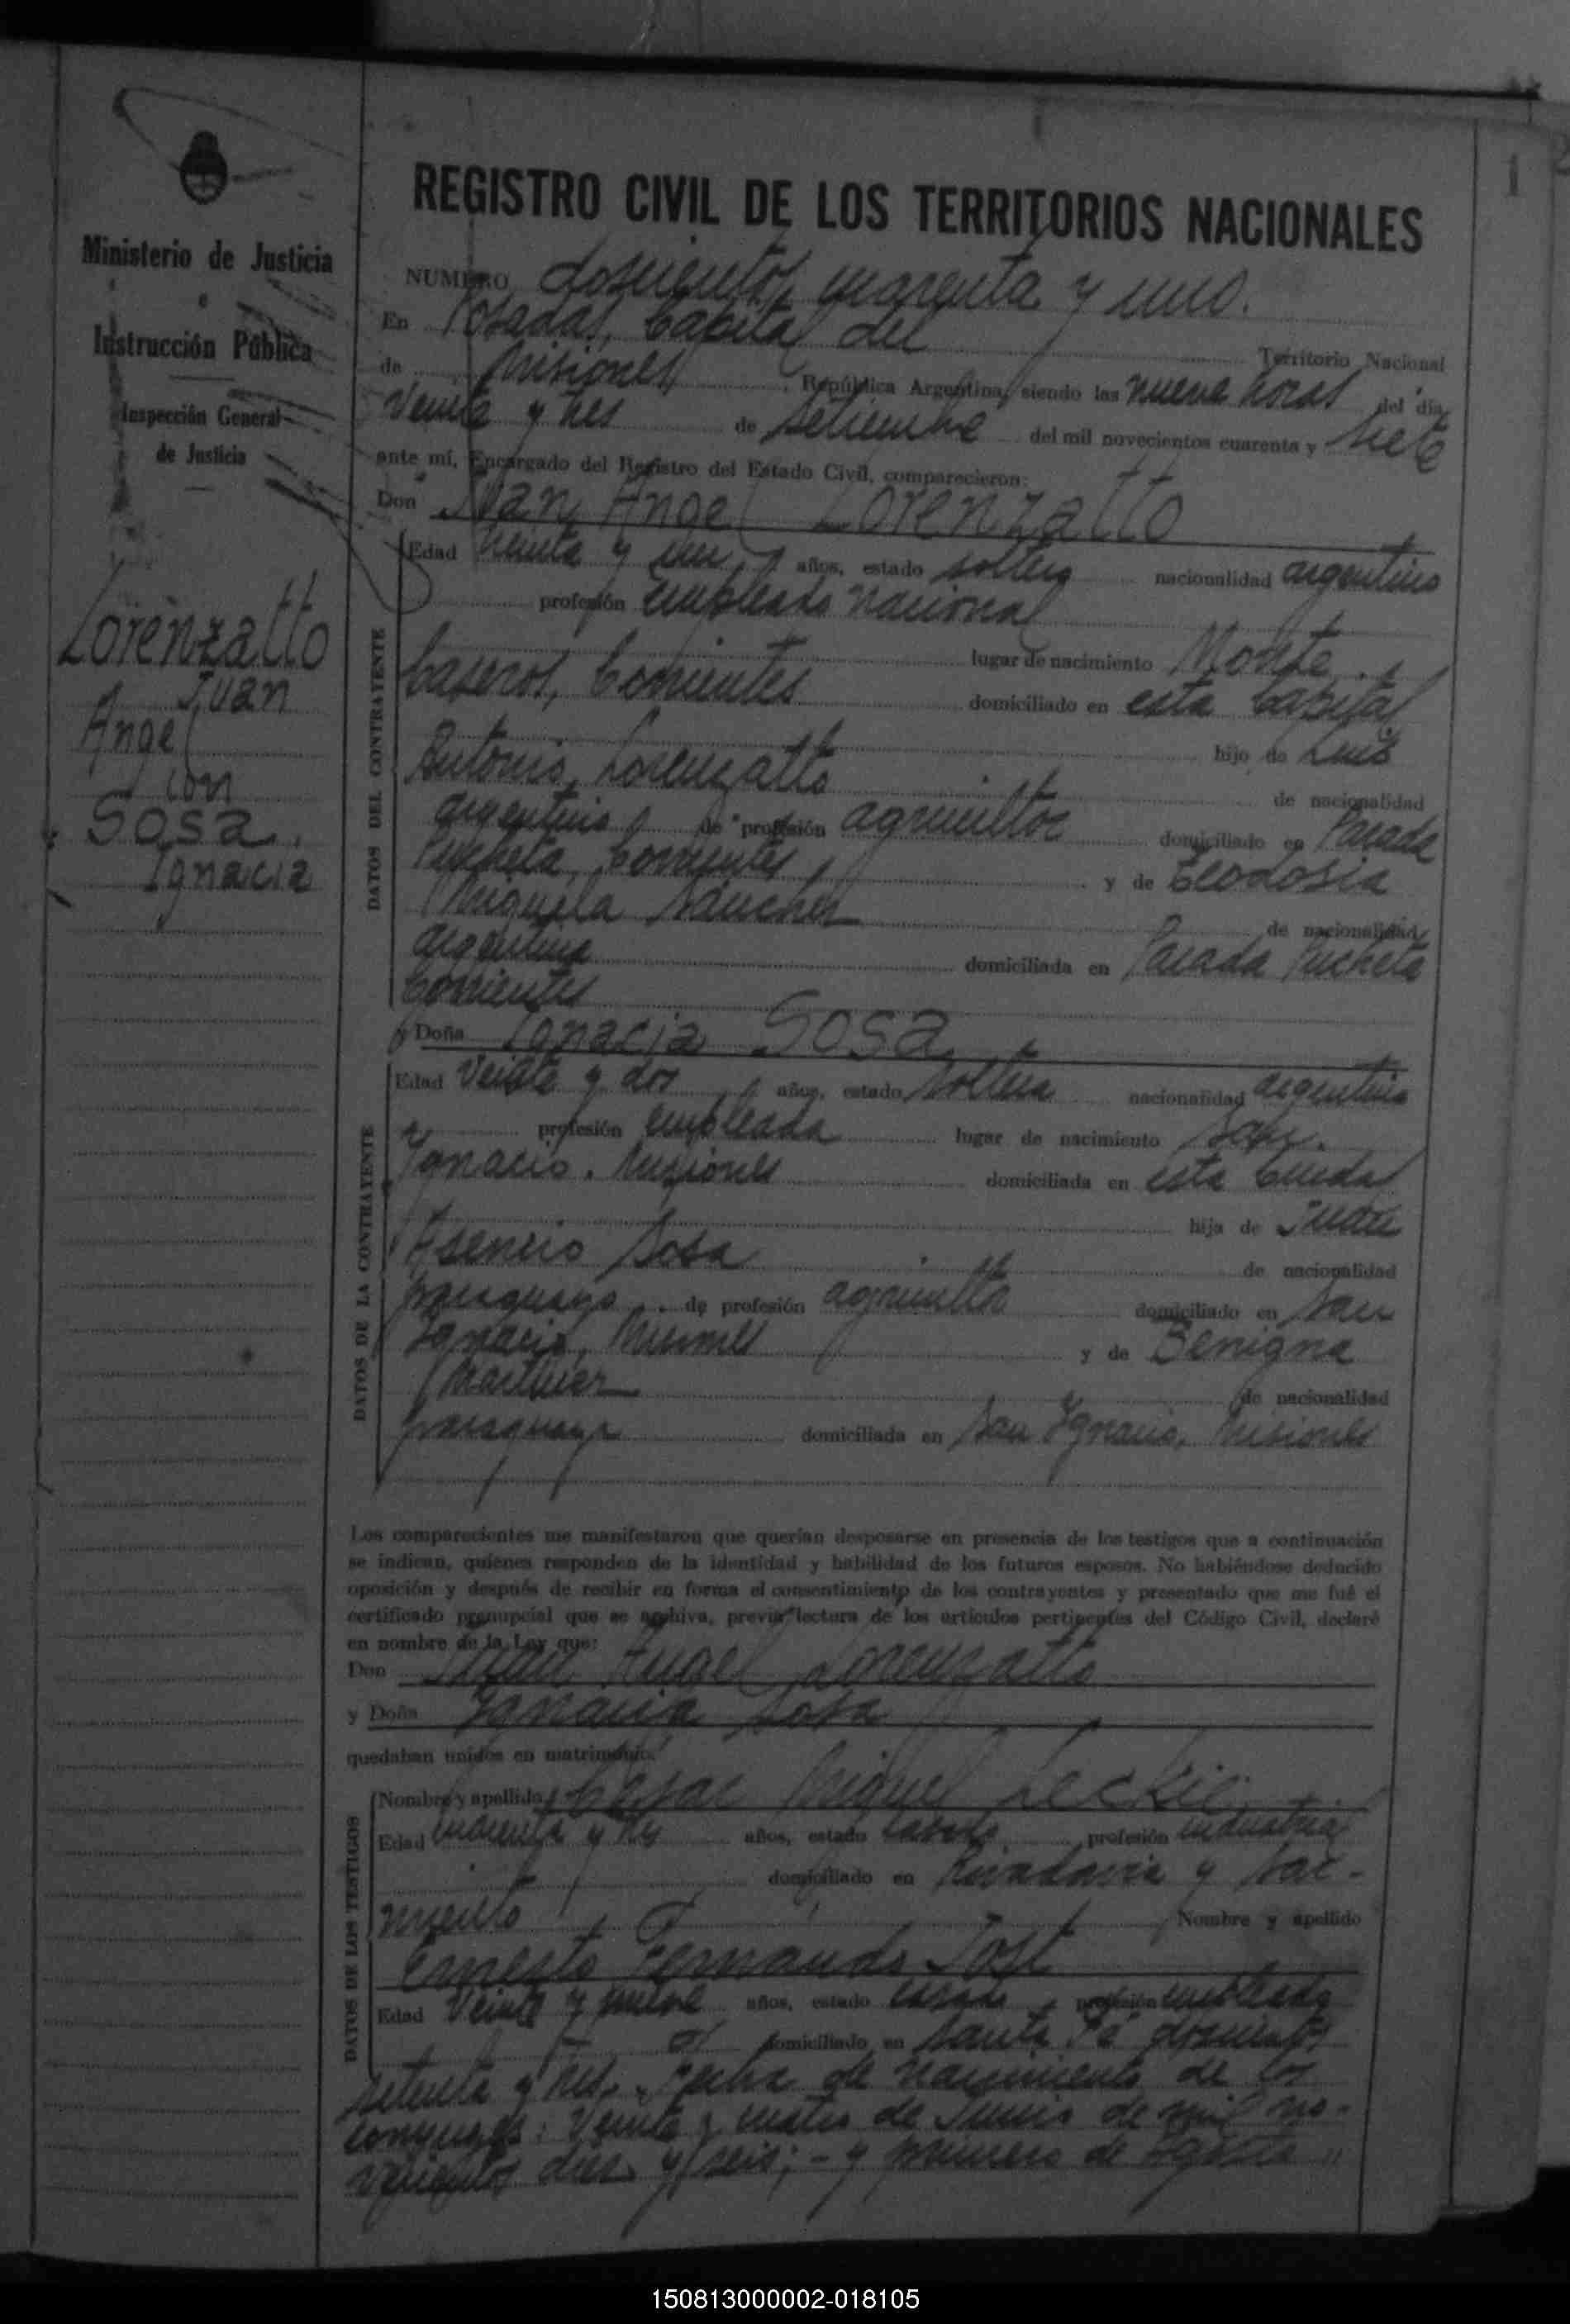 Ministerio de Justicia
e
Instrucción Pública
Inspección General
de Justicia
Lorenzatto
Juan
Angel
con
Sosa
Ignacia
1
REGISTRO CIVIL DE LOS TERRITORIOS NACIONALES
NUMERO doscientos cuarenta y uno.
En Posadas, Capital del Territorio Nacional
de Misiones, República Argentina, siendo las nueve horas del día
veinte y tres de setiembre del mil novecientos cuarenta y siete
ante mí, Encargado del Registro del Estado Civil, comparecieron:
Don Juan Angel Lorenzatto
DATOS DEL CONTRAYENTE
Edad años, estado soltero nacionalidad argentino
profesión empleado nacional
lugar de nacimiento Monte
Caseros, Corrientes domiciliado en esta Capital
hijo de Luis
Antonio Lorenzatto de nacionalidad
argentino de profesión agricultor domiciliado en Parada
Pucheta, Corrientes y de Teodosia
Miguela Sanchez de nacionalidad
argentina domiciliada en Parada Pucheta
Corrientes
y Doña Ignacia Sosa
DATOS DE LA CONTRAYENTE
Edad veinte y dos años, estado soltera nacionalidad argentina
profesión empleada lugar de nacimiento San
Ignacio, Misiones domiciliada en esta Ciudad
hija de Juan
Asencio Sosa de nacionalidad
paraguayo de profesión agricultor domiciliado en San
Ignacio, Misiones y de Benigna
Martinez de nacionalidad
paraguaya domiciliada en San Ignacio, Misiones
Los comparecientes me manifestaron que querían desposarse en presencia de los testigos que a continuación
se indican, quienes responden de la identidad y habilidad de los futuros esposos. No habiéndose deducido
oposición y después de recibir en forma el consentimiento de los contrayentes y presentado que me fué el
certificado prenupcial que se archiva, previa lectura de los artículos pertinentes del Código Civil, declaré
en nombre de la Ley que:
Don Juan Angel Lorenzatto
y Doña Ignacia Sosa
quedaban unidos en matrimonio.
DATOS DE LOS TESTIGOS
Nombre y apellido Cesar Miguel Leckie
Edad cuarenta y años, estado casado profesión industrial
domiciliado en Rivadavia y Sar-
miento Nombre y apellido
Ernesto Fernando Jost
Edad veinte y nueve años, estado casado profesión empleado
domiciliado en Santa Fé doscientos
setenta y tres. Fecha de nacimiento de los
conyuges: veinte y cuatro de Junio de mil no-
vecientos diez y seis; - y primero de Agosto "
150813000002-018105